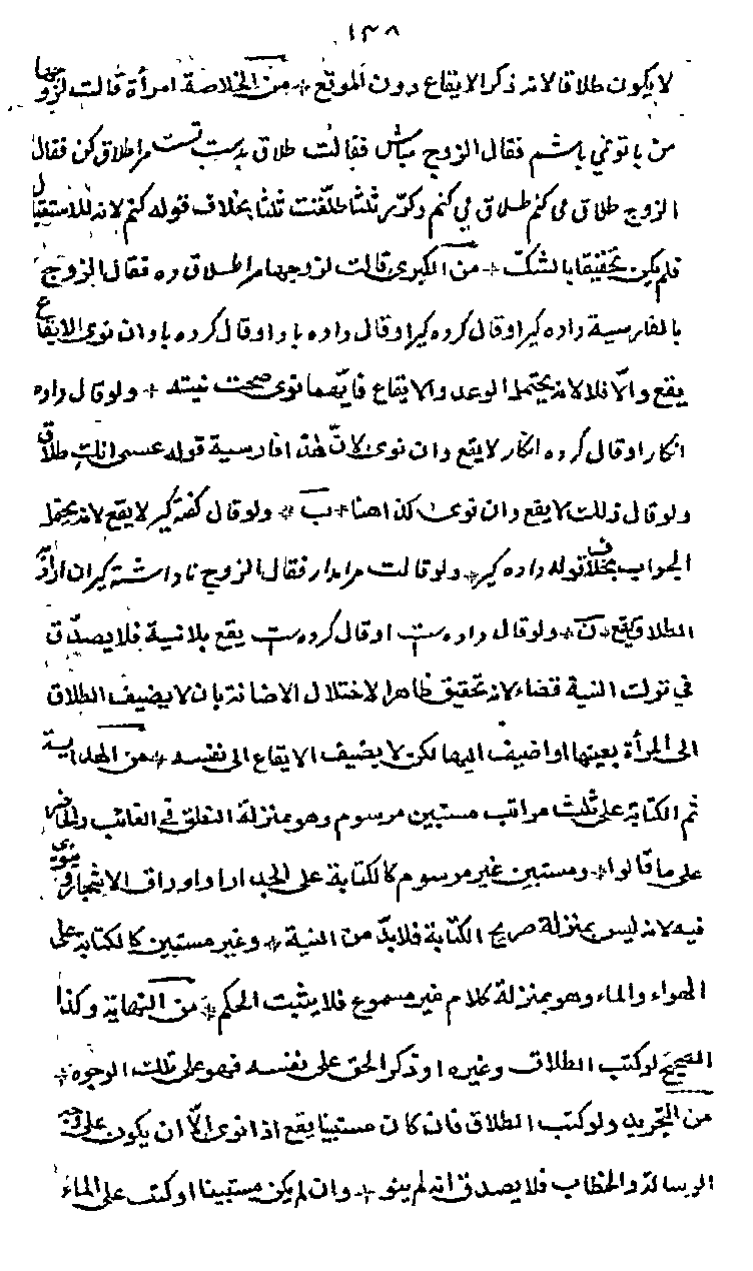 ١٣٨
لا يكون طلاقا لانه ذكر الايقاع دون الموقع * من الخلاصة امرأة قالت لزوجها
من با تو نمي باشم فقال الزوج مباش فقالت طلاق بدست تست مرا طلاق كن فقال
الزوج طلاق مي كنم طلاق مي كنم وكرر ثلثا طلقت ثلثا بخلاف قوله كنم لانه للاستقبال
فلم يكن تحقيقا بالشك * من الكبرى قالت لزوجها مرا طلاق ده فقال الزوج
بالفارسية داده كير او قال كرده كير او قال داده باد او قال كرده باد ان نوى الايقاع
يقع والّا فلا لانه يحتمل الوعد والايقاع فايّهما نوى صحت نيته * ولو قال داده
انكار او قال كرده انكار لا يقع وان نوى لانّ هذا فارسية قوله عسى انت طلاق
ولو قال ذلك لا يقع وان نوى كذا هنا * ب * ولو قال كفته كير لا يقع لانه يحتمل
الجواب بخلاف قوله داده كير * ولو قالت مرا مدار فقال الزوج نا داشته كير ان اراد
الطلاق يقع * ن * ولو قال داده ست او قال كرده ست يقع بلا نية فلا يصدّق
في ترك النية قضاء لانه تحقيق ظاهرا لاختلال الاضافة بان لا يضيف الطلاق
الى المرأة بعينها او اضيف اليها لكن لا يضيف الايقاع الى نفسه * من الهداية
ثم الكتابة على ثلث مراتب مستبين مرسوم وهو بمنزلة النطق في الغائب والحاضر
على ما قالوا * ومستبين غير مرسوم كالكتابة على الجدار او اوراق الاشجار وينوى
فيه لانه ليس بمنزلة صريح الكتابة فلا بدّ من النية * وغير مستبين كالكتابة على
الهواء والماء وهو بمنزلة كلام غير مسموع فلا يثبت الحكم * من النهاية وكذا
الصحيح لو كتب الطلاق وغيره او ذكر الحق على نفسه فهو على تلك الوجوه *
من التجريد ولو كتب الطلاق فان كان مستبينا يقع اذا نوى الّا ان يكون على وجه
الرسالة والخطاب فلا يصدق انه لم ينو * وان لم يكن مستبينا او كتب على الماء